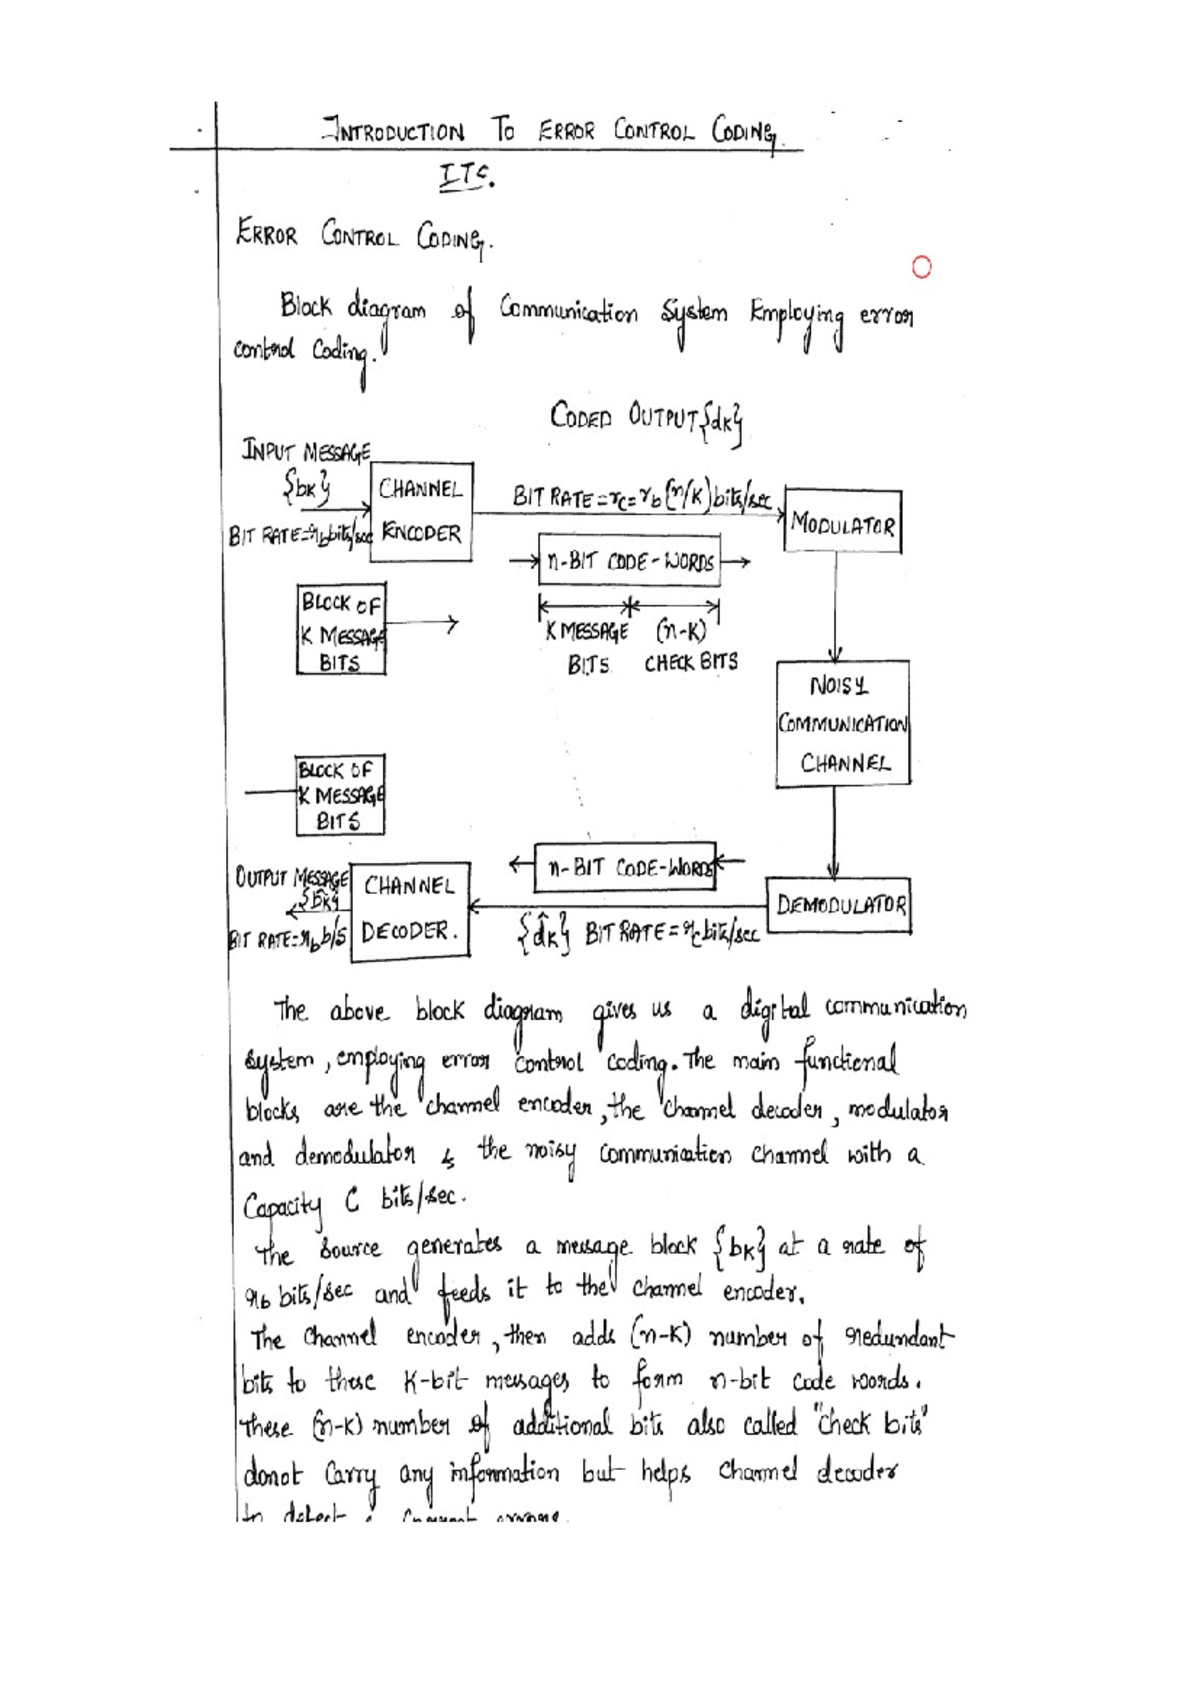 INTRODUCTION TO ERROR CONTROL CODING.
ITC.
ERROR CONTROL CODING.
Block diagram of Communication System Employing error
control Coding.
CODED OUTPUT {dK}
INPUT MESSAGE
{bK}
BIT RATE=rb bits/sec
CHANNEL
ENCODER
BIT RATE=rc=rb(n/K)bits/sec
MODULATOR
n-BIT CODE-WORDS
BLOCK OF
K MESSAGE
BITS
K MESSAGE
BITS
(n-K)
CHECK BITS
NOISY
COMMUNICATION
CHANNEL
BLOCK OF
K MESSAGE
BITS
n-BIT CODE-WORDS
OUTPUT MESSAGE
{b̂K}
BIT RATE=rb b/s
CHANNEL
DECODER.
{d̂K} BIT RATE=rc bits/sec
DEMODULATOR
The above block diagram gives us a digital communication
system, employing error control coding. The main functional
blocks are the channel encoder, the channel decoder, modulator
and demodulator & the noisy communication channel with a
Capacity C bits/sec.
The Source generates a message block {bK} at a rate of
rb bits/sec and feeds it to the channel encoder.
The Channel encoder, then adds (n-K) number of redundant
bits to these K-bit messages to form n-bit code words.
These (n-K) number of additional bits also called "check bits"
donot Carry any information but helps channel decoder
to detect & correct errors.